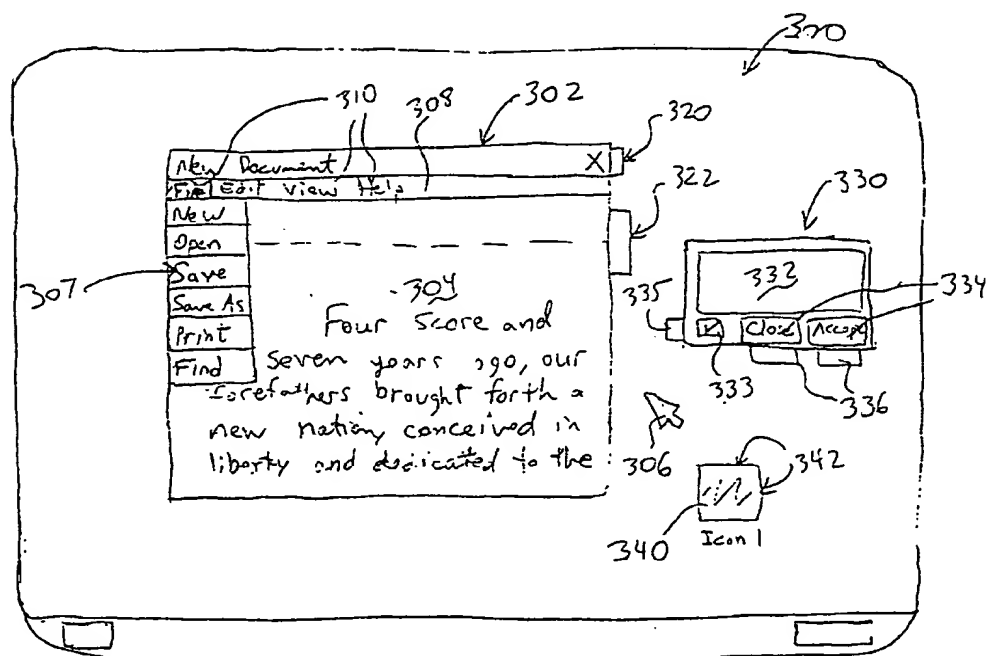 300
310 308 302
320
New Document X
File Edit View Help
322
330
New
Open
307
Save
304
Save As
Print
Find
Four Score and
Seven years ago, our
forefathers brought forth a
new nation conceived in
liberty and dedicated to the
332
334
335
Close Accept
333
336
306
342
340
Icon 1